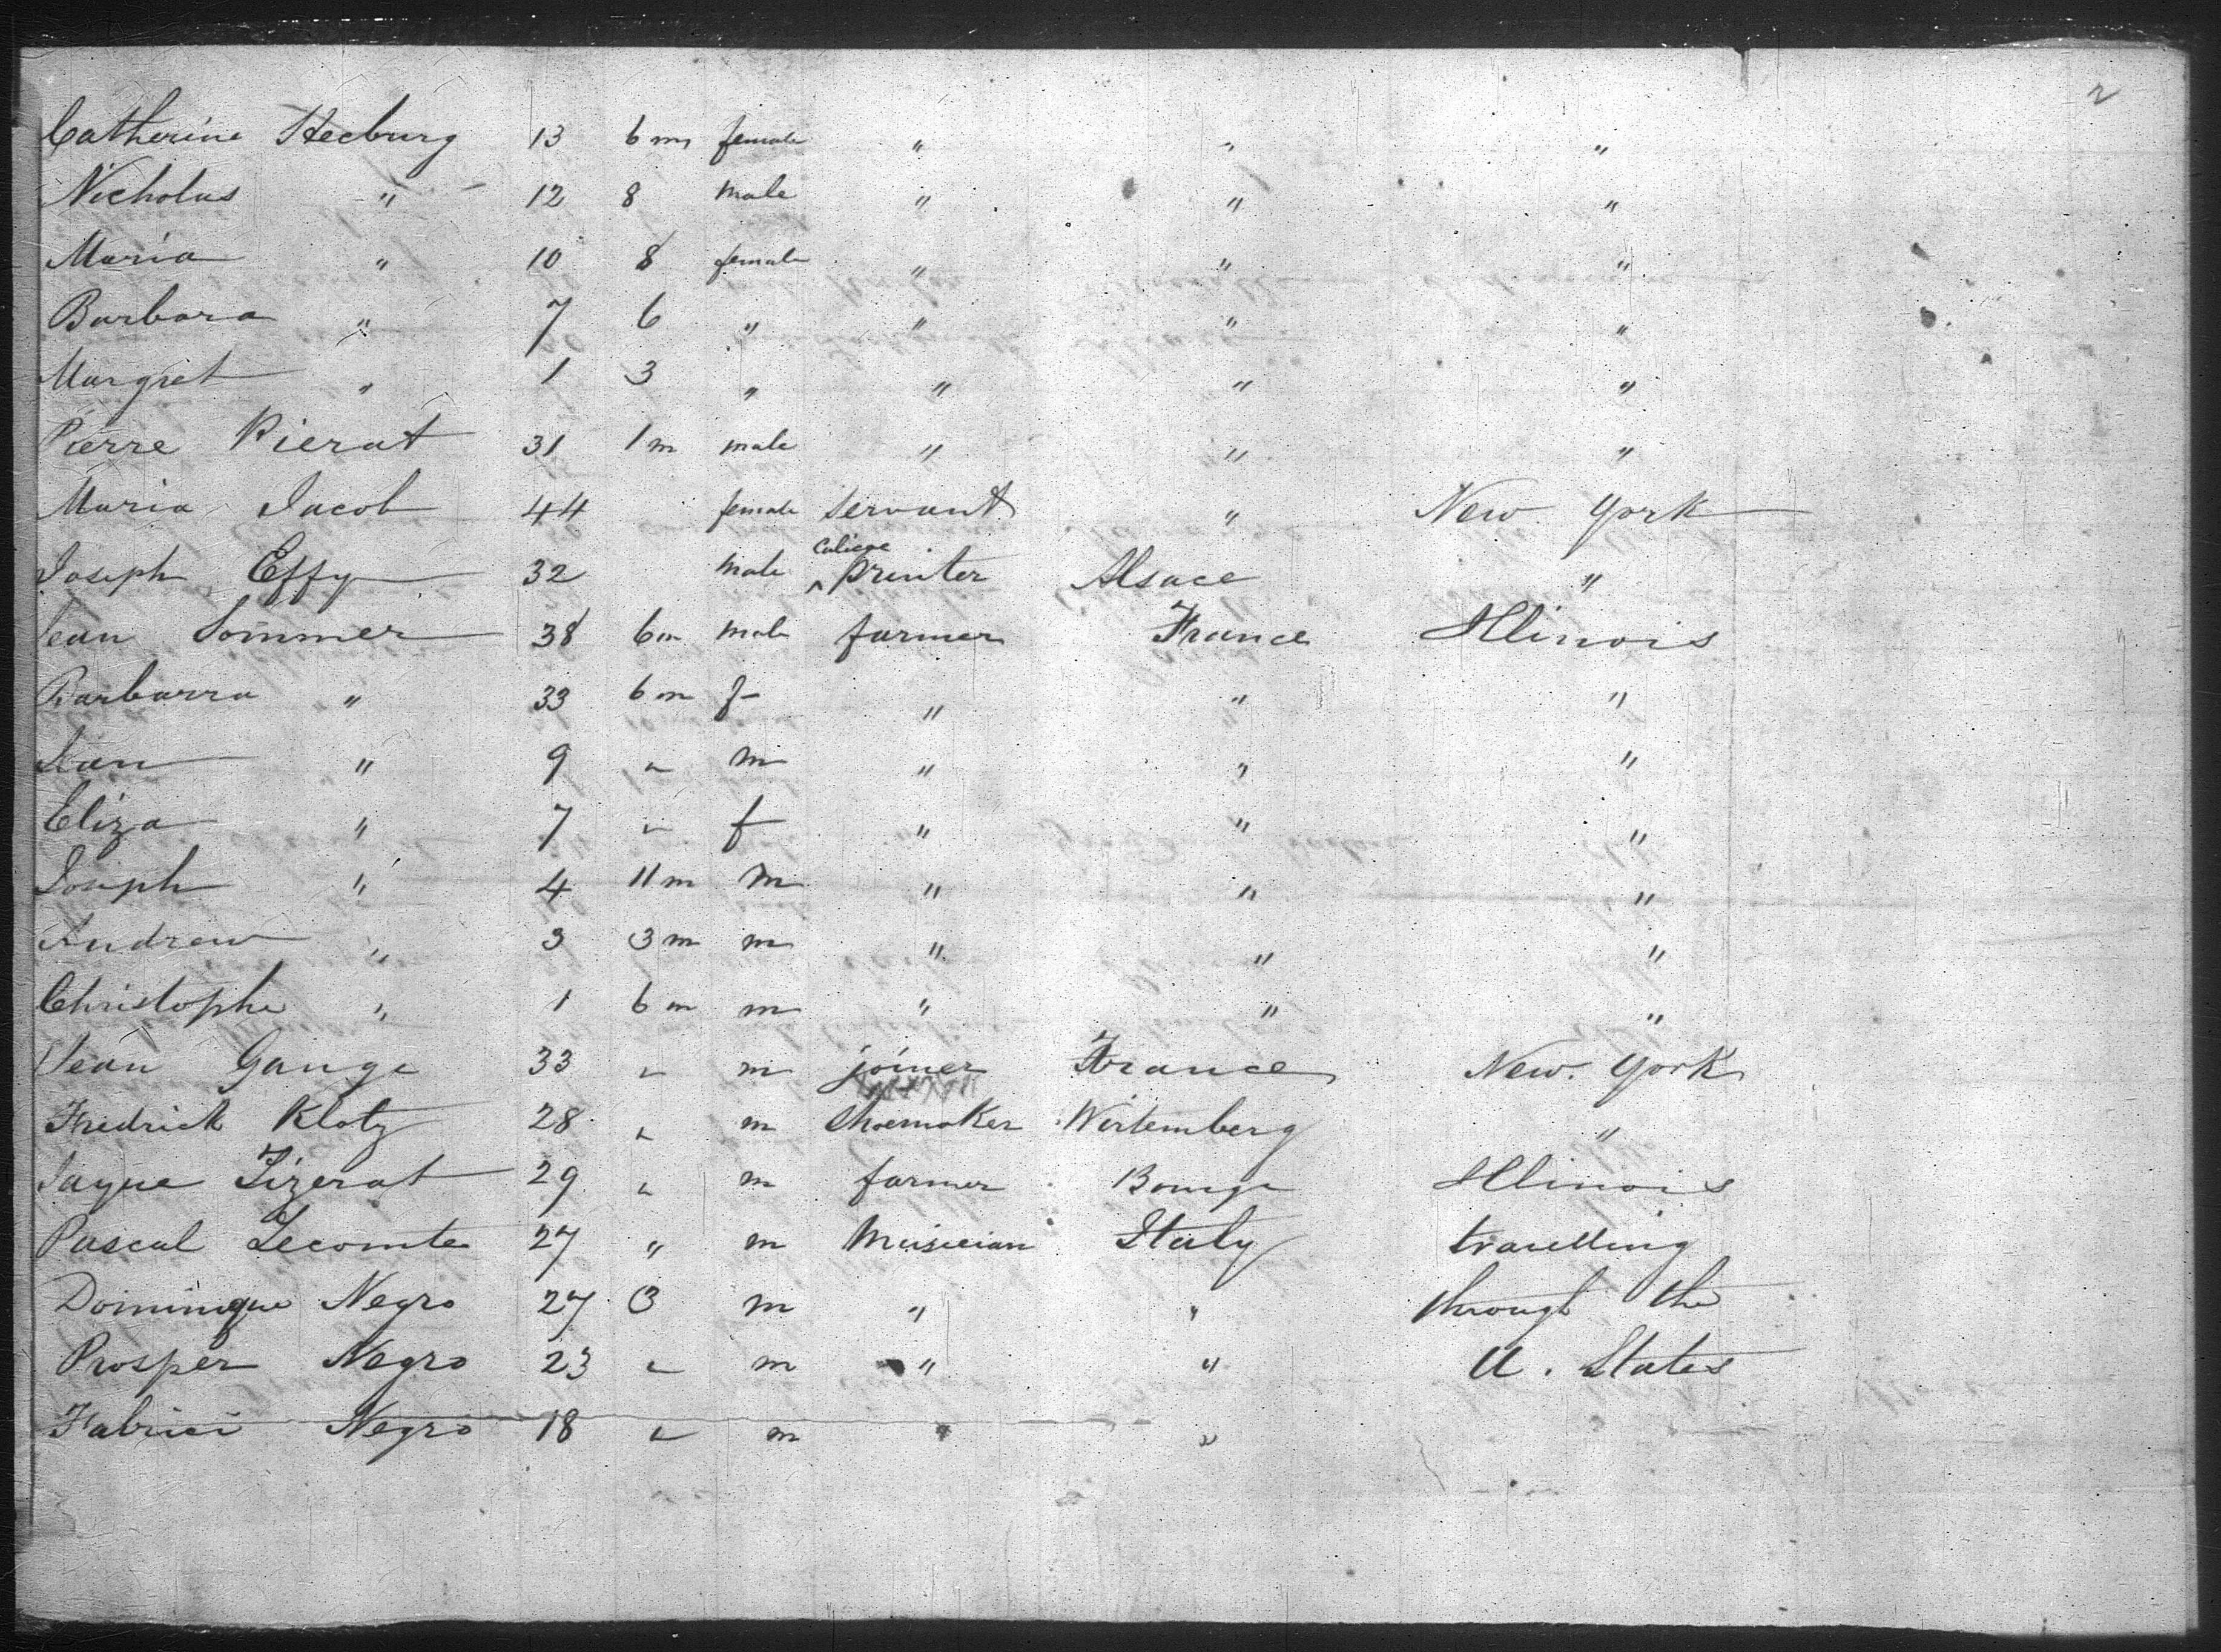 2
Catherine Heeburg 13 6 ms female " " "
Nicholus " 12 8 male " " "
Maria " 10 8 female " " "
Barbara " 7 6 " " " "
Margret " 1 3 " " " "
Pierre Pierat 31 1 m male " " "
Maria Jacob 44 female servant " New York
Joseph Effy 32 male Calicoe printer Alsace "
Jean Sommer 38 6 m male farmer France Illinois
Barbarra " 33 6 m f " " "
Jean " 9 " m " " "
Eliza " 7 " f " " "
Joseph " 4 11 m m " " "
Andrew " 3 3 m m " " "
Christophe " 1 6 m m " " "
Jean Gange 33 " m joiner France New York
Fredrick Klotz 28 " m shoemaker Wirtemberg "
Jaque Lizerat 29 " m farmer Bourge Illinois
Pascal Lecomte 27 " m Musician Italy travelling
Dominique Negro 27 3 m " " through the
Prosper Negro 23 " m " " U. States
Fabrici Negro 18 " m " "